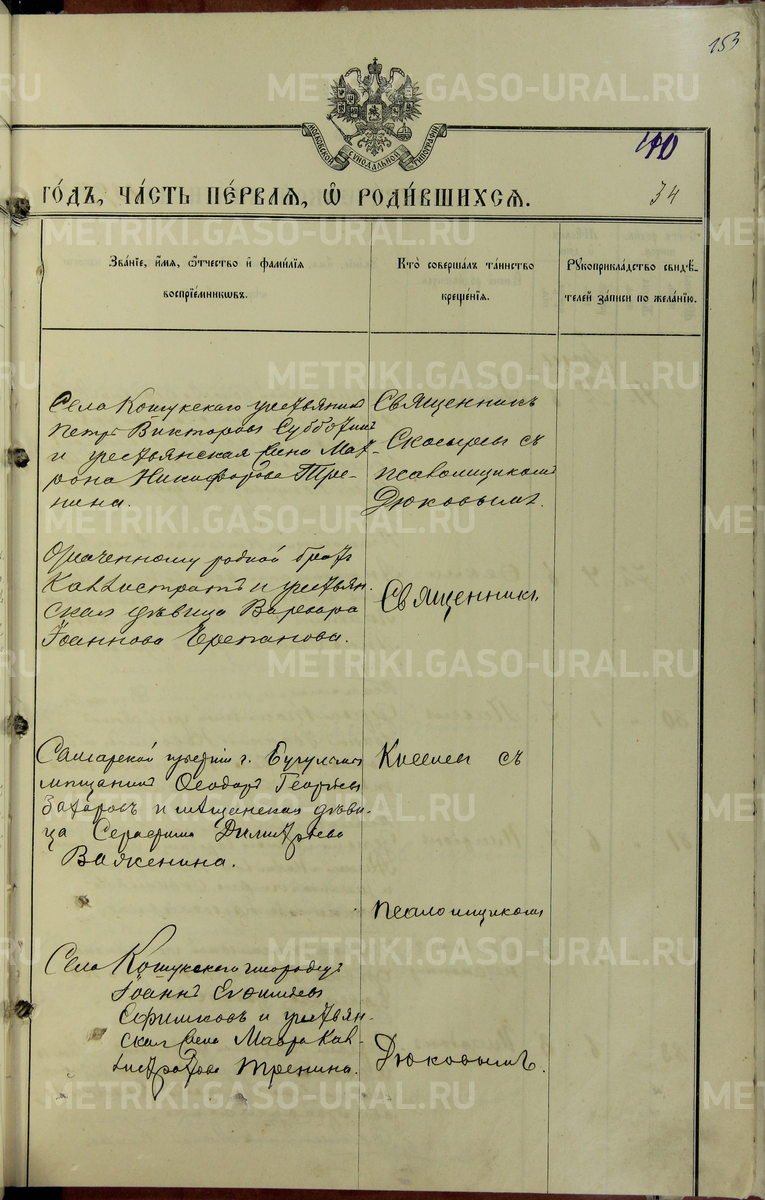 153
METRIKI.GASO-URAL.RU
МОСКОВСКОЙ СѴНОДАЛЬНОЙ ТИПОГРАФІИ
40
34
ГО́ДЪ, ЧА́СТЬ ПЕ́РВАѦ, Ѽ РОДИ́ВШИХСѦ.
Зва́нїе, и́мѧ, ѻ҆́тчество и҆ фами́лїѧ
воспрїе́мникѡвъ.
Кто̀ соверша́лъ та́инство
креще́нїѧ.
Рꙋкоприкла́дство свидѣ́-
телей за́писи по жела́нїю.
Села Кошукскаго крестьянинъ
Петръ Викторовъ Субботинъ
и крестьянская жена Мат-
рона Никифорова Тре-
нина.
Священникъ
Скосыревъ съ
псаломщикомъ
Дюковымъ.
родной братъ
Каллистратъ и крестьян-
ская дѣвица Варвара
Іоаннова Черепанова.
Священникъ
Самарской губерніи г. Бугульмы
мѣщанинъ Ѳеодоръ Георгіевъ
Захаровъ и мѣщанская дѣви-
ца Серафима Димитріева
Важенина.
съ
псаломщикомъ
Села Кошукскаго инородецъ
Іоаннъ Евфиміевъ
Ефимковъ и крестьян-
ская жена Мавра Кал-
листратова Тренина.
Дюковымъ.